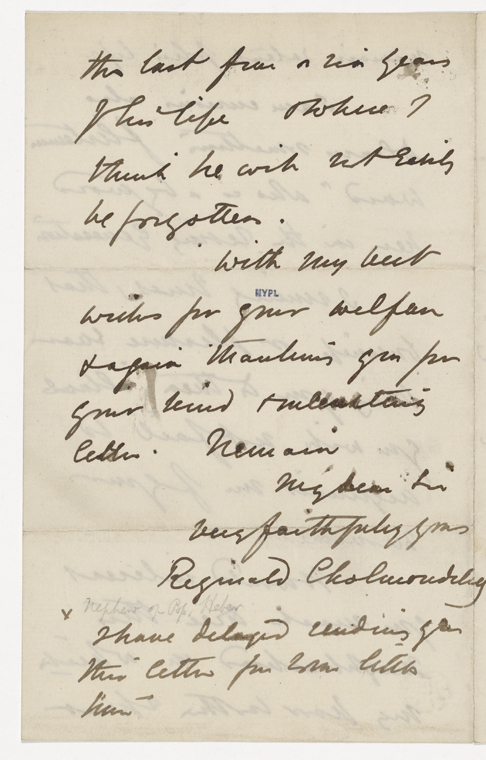 the last five or six years
of his life & where I
think he will not easily
be forgotten.
With my best
wishes for your welfare
& again thanking you for
your kind & interesting
letter. I remain
My dear Sir
very faithfully yours
Reginald Cholmondeley
x Nephew of Bp. Heber
I have delayed sending you
this letter for some little
time
NYPL